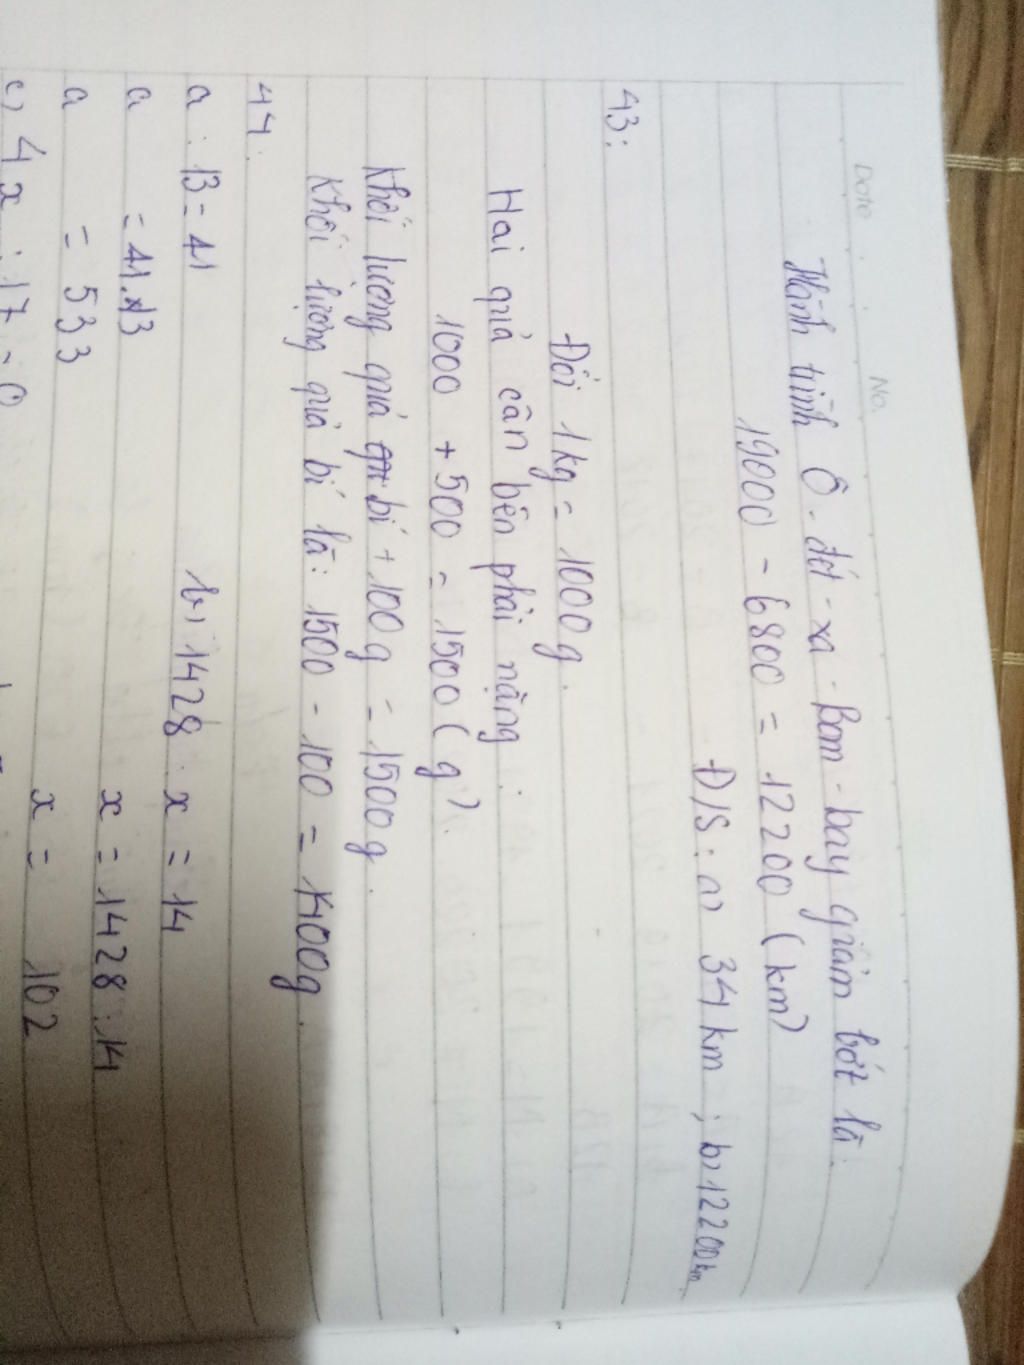 Date . . No.
Hành trình Ô-đét-xa-Bom-bay giảm bớt là:
19000 - 6800 = 12200 (km)
Đ/S: a) 34 km ; b) 12200 km
43:
Đổi 1kg = 1000g.
Hai quả cân bên phải nặng:
1000 + 500 = 1500 (g).
Khối lượng quả bí + 100g = 1500g.
Khối lượng quả bí là: 1500 - 100 = 1400g.
44.
a : 13 = 41 b) 1428 : x = 14
a = 41.13 x = 1428 : 14
a = 533 x = 102
c) 4x : 17 = 0